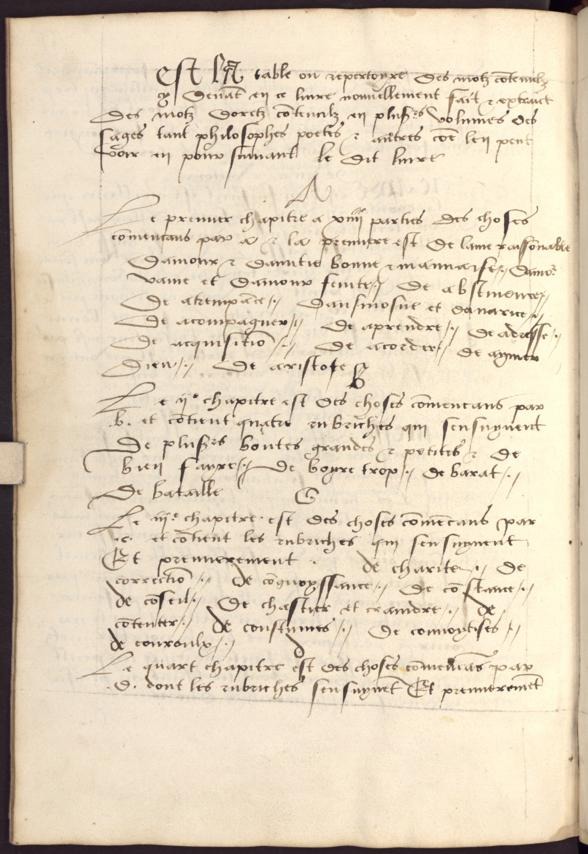 Est la table ou repertoyre des motz cōtenuz
cy devāt en ce livre nouvellement fait & extraict
des motz dorez cōtenuz en plusrs volumes des
sages tant philosophes poetes & autres cōe len peut
voir en poursuivant le dit livre
A
Le premier chapitre a xviii parties des choses
comēcans par a & la premiere est de lame raisonnable
Damour & damitie bonne & mauvaise // Damour
vaine et damour feinte // De abstinence //
De atrempāce // Daulmosne et davarice //
De acompaigner // De aprendre // De adresse //
De acquisitiō // De acorder // de aymer
Dieu // De aristote
B
Le iie chapitre est des choses comēcans par
.b. et cōtient quatre rubriches qui sensuyvent
De plusrs bontes grandes & petites & de
bien fayre // De boyre trop // de barat //
De bataille
C
Le iiie chapitre est des choses comēcans par
.c. et cōtient les rubriches qui sensuyvent
Et premierement . de charite // De
correctiō // De cognoyssance // De cōstance //
de cōseil // De chastier et craindre // de
cōtenter // de coustumes // De convoitises //
de couroulx //
D
Le quart chapitre est des choses comēcās par
.d. dont les rubriches sensuyvēt Et premieremēt